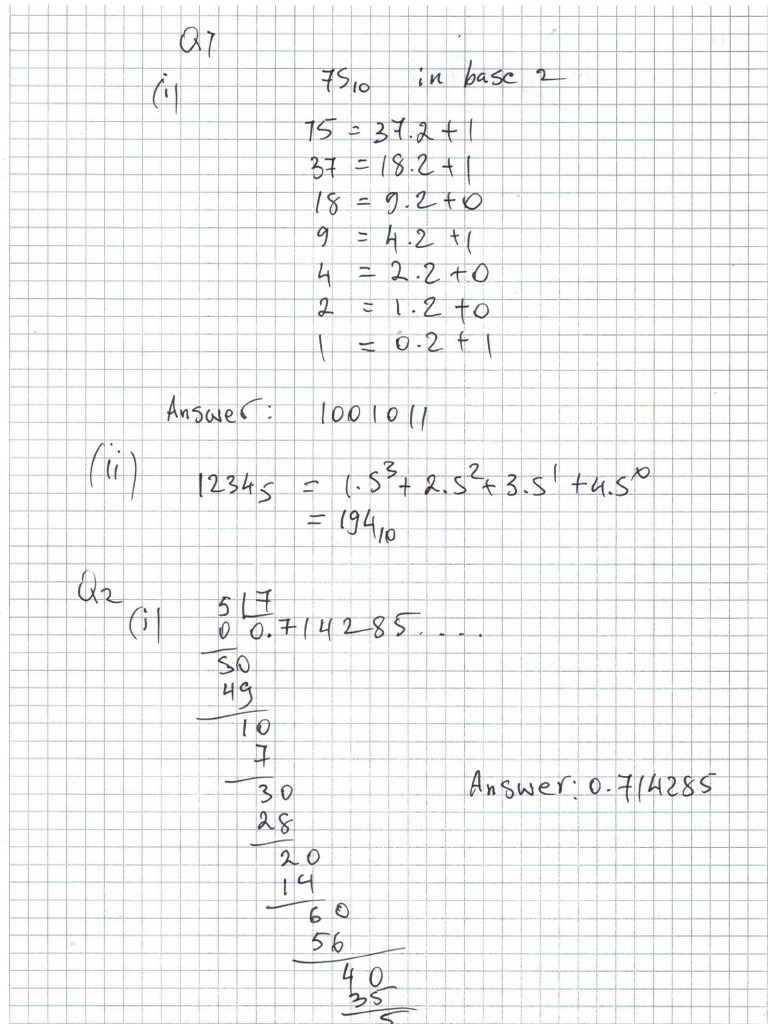 Q1
(i) 75₁₀ in base 2
75 = 37.2 + 1
37 = 18.2 + 1
18 = 9.2 + 0
9 = 4.2 + 1
4 = 2.2 + 0
2 = 1.2 + 0
1 = 0.2 + 1
Answer: 1001011
(ii) 1234₅ = 1.5³ + 2.5² + 3.5¹ + 4.5⁰
= 194₁₀
Q2
(i) 5 7
0 0.714285....
50
49
10
7
30
Answer: 0.714285
28
20
14
60
56
40
35
5